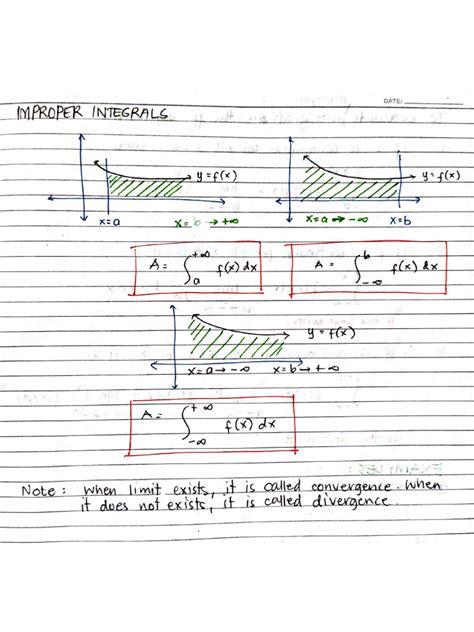 DATE:
IMPROPER INTEGRALS
y = f(x)
y = f(x)
x = a
x = b → +∞
x = a → -∞
x = b
A = ∫ₐ⁺∞ f(x) dx
A = ∫₋∞ᵇ f(x) dx
y = f(x)
x = a → -∞
x = b → +∞
A = ∫₋∞⁺∞ f(x) dx
EXAMPLES:
Note : When limit exists, it is called convergence. When
it does not exists, it is called divergence.